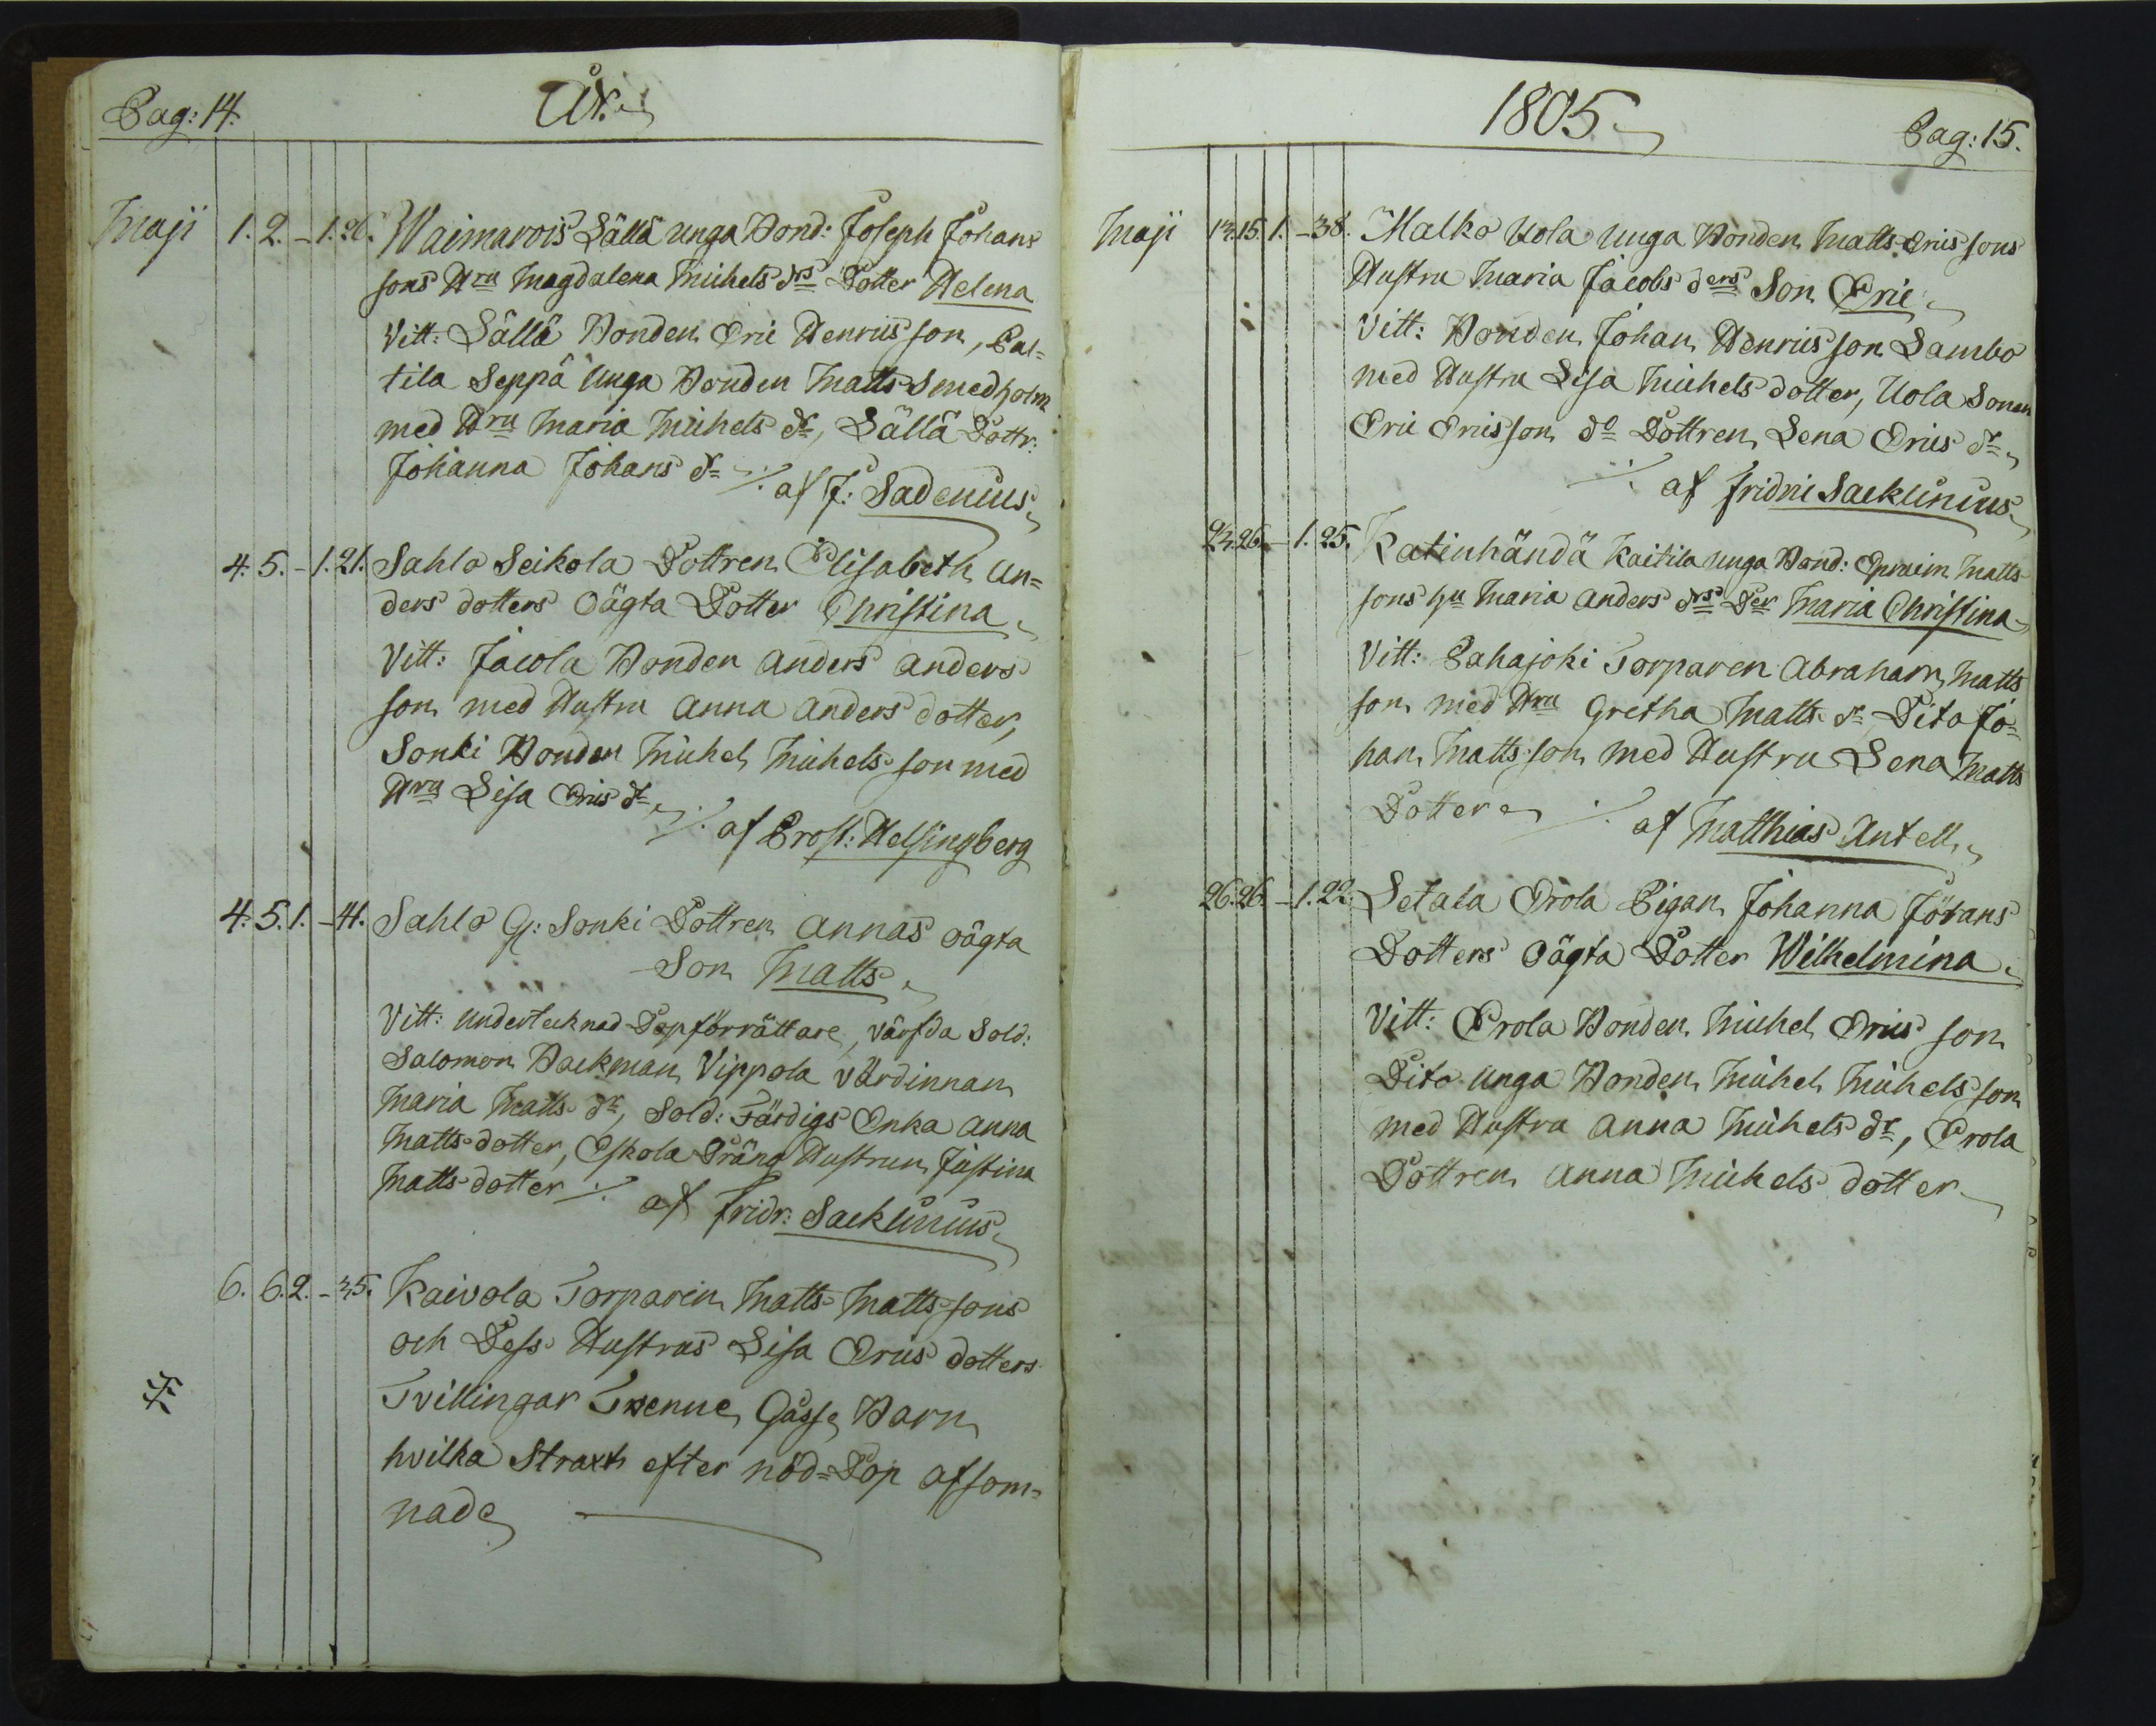 Pag: 14.
År.
Maji 1. 2. - 1. 26. Waimarois Källä unga Bond: Joseph Johans
sons Hru Magdalena Michels drs Dotter Helena
Vitt: Källä Bonden Eric Henricsson, Pal=
tila Seppä Unga Bonden Matts Smedholm
med Hru Maria Michels dr, Källä Dottr:
Johanna Johans dr ·/· af J: Sadenius
4. 5. - 1. 21. Sahlo Seikola Dottren Elisabeth An=
ders dotters Oägta Dotter Christina
Vitt: Jacola Bonden Anders Anders
son med Hustru Anna Anders dotter,
Sonki Bonden Michel Michels son med
Hru Lisa Erics dr ·/· af Prost: Helsingberg
4. 5. 1. - 41. Sahlo G: Sonki Dottren Annas oägta
Son Matts
Vitt: Undertecknad Dopförrättare, värfda Sold:
Salomon Backman Vippola värdinnan
Maria Matts dr, Sold: Färdigs Enka Anna
Matts dotter, Eskola Dräng Hustrun Justina
Matts dotter ·/· af Fridr: Sacklinius
6. 6. 2. - 35. Kaivola Torparen Matts Mattssons
och Dess Hustrus Lisa Erics dotters
Tvillingar Twenne Gåsse Barn
hvilka Straxt efter nöd=Dop afsom=
nade
1805
Pag: 15.
Maji 14. 15. 1. - 38. Malko Uola Unga Bonden Matts Ericssons
Hustru Maria Jacobs ders Son Eric
Vitt: Bonden Johan Henricsson Lambo
med Hustru Lisa Michels dotter, Uola Sonen
Eric Ericsson do Dottren Lena Erics dr
·/· af Fridric Sacklinius
24. 26. - 1. 25. Katinhändä Kaitila unga Bond: Epraim Matts
sons hu Maria Anders drs Der Maria Christina
Vitt: Pahajoki Torparen Abraham Matts
son med Hru Gretha Matts dr Dito Jo=
han Mattsson med Hustru Lena Matts
Dotter ·/· af Matthias Antell
26. 26. - 1. 22. Setala Erola Pigan Johanna Johans
Dotters Oägta Dotter Wilhelmina
Vitt: Erola Bonden Michel Erics son
Dito Unga Bonden Michel Michels son
med Hustru Anna Michels dr, Erola
Dottren Anna Michels dotter